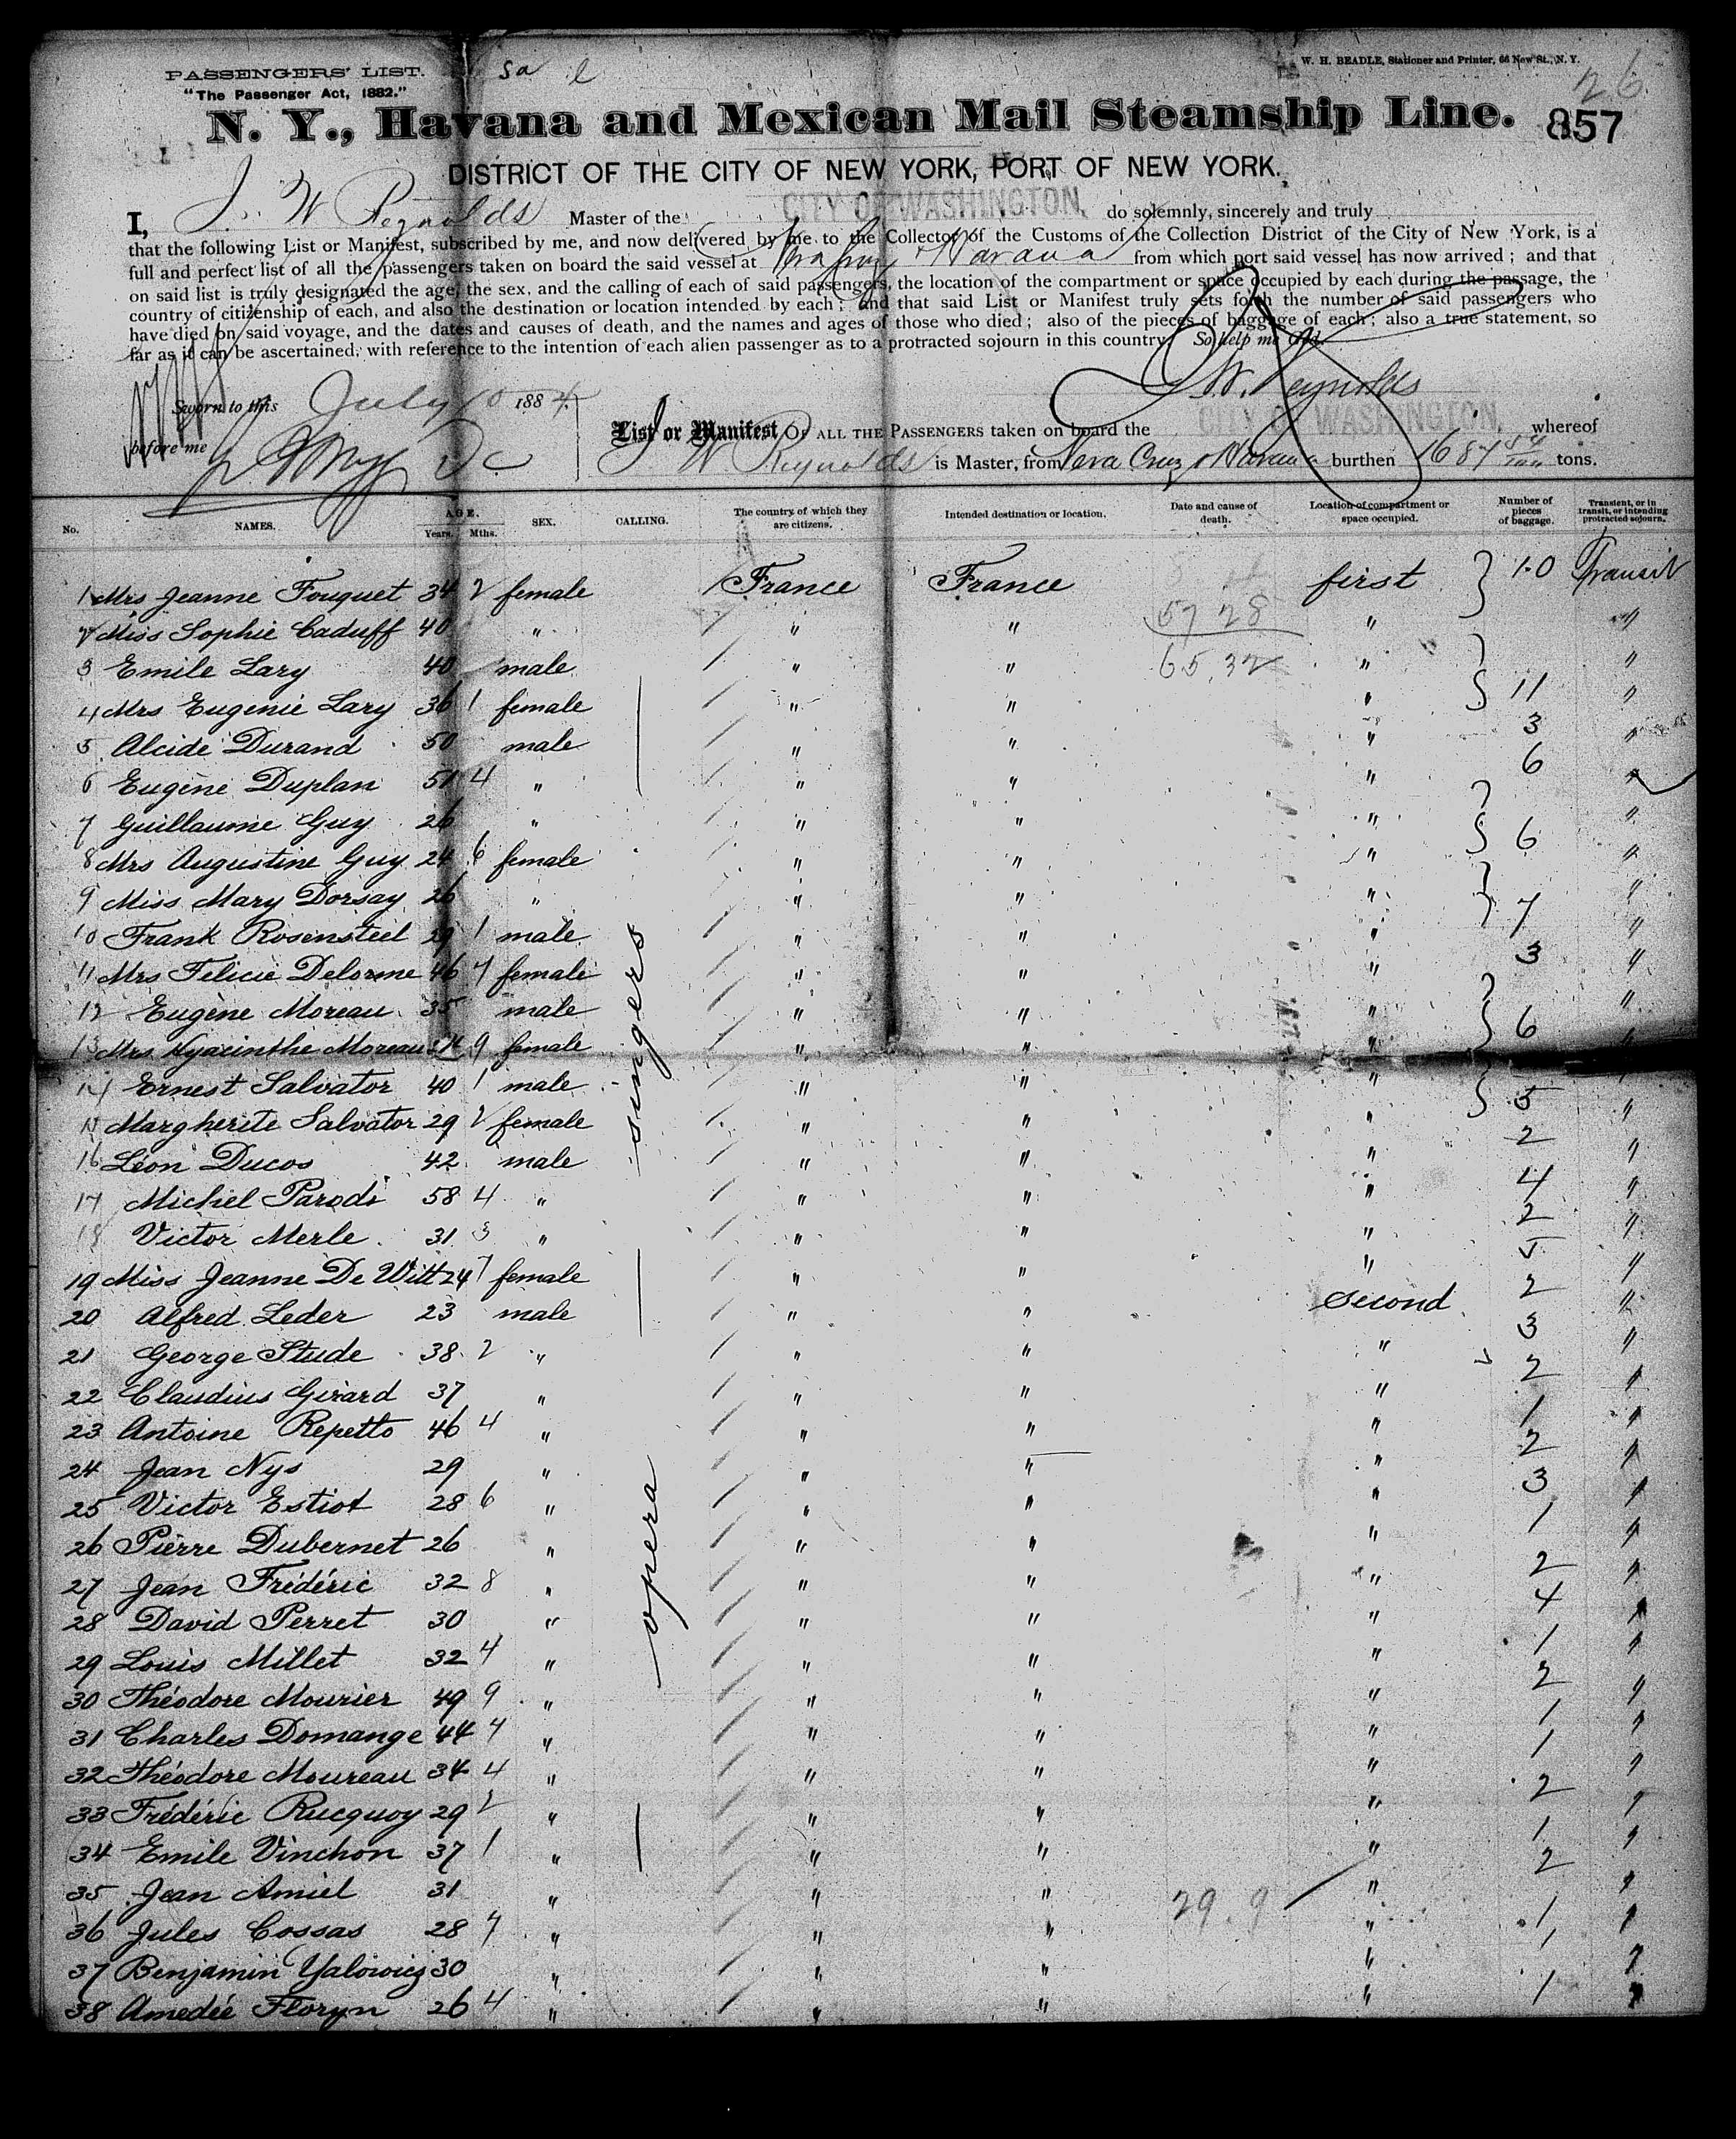 PASSENGERS' LIST.
"The Passenger Act, 1882."
W. H. BEADLE, Stationer and Printer, 66 New St., N. Y.
26
N. Y., Havana and Mexican Mail Steamship Line. 857
DISTRICT OF THE CITY OF NEW YORK, PORT OF NEW YORK.
I, J. W Reynolds Master of the CITY OF WASHINGTON, do solemnly, sincerely and truly
that the following List or Manifest, subscribed by me, and now delivered by me to the Collector of the Customs of the Collection District of the City of New York, is a
full and perfect list of all the passengers taken on board the said vessel at Vera Cruz & Havana from which port said vessel has now arrived; and that
on said list is truly designated the age, the sex, and the calling of each of said passengers, the location of the compartment or space occupied by each during the passage, the
country of citizenship of each, and also the destination or location intended by each; and that said List or Manifest truly sets forth the number of said passengers who
have died on said voyage, and the dates and causes of death, and the names and ages of those who died; also of the pieces of baggage of each; also a true statement, so
far as it can be ascertained, with reference to the intention of each alien passenger as to a protracted sojourn in this country. So help me God.
J. W. Reynolds
Sworn to this July 10 1884.
before me
List or Manifest OF ALL THE PASSENGERS taken on board the CITY OF WASHINGTON, whereof
J W Reynolds is Master, from Vera Cruz & Havana burthen 1687 tons.
No. NAMES. AGE. Years. Mths. SEX. CALLING. The country of which they are citizens. Intended destination or location. Date and cause of death. Location of compartment or space occupied. Number of pieces of baggage. Transient, or in transit, or intending protracted sojourn.
1 Mrs Jeanne Fouquet 34 2 female France France first 10 Transit
2 Miss Sophie Caduff 40 " " " 57 28 " "
3 Emile Lary 40 male " " 65.32 " "
4 Mrs Eugenie Lary 36 1 female " " " 11 "
5 Alcide Durand 50 male " " " 3 "
6 Eugène Duplan 51 4 " " " " 6 "
7 Guillaume Guy 26 " " " " "
8 Mrs Augustine Guy 24 6 female " " " 6 "
9 Miss Mary Dorsay 26 " " " " "
10 Frank Rosensteel 29 1 male " " " 7 "
11 Mrs Felicie Delorme 46 7 female " " " 3 "
12 Eugène Moreau 35 male " " " "
13 Mrs Hyacinthe Moreau 24 9 female " " " 6 "
14 Ernest Salvator 40 1 male " " " "
15 Margherite Salvator 29 2 female " " " 5 "
16 Léon Ducos 42 male " " " 2 "
17 Michel Parodi 58 4 " " " " 4 "
18 Victor Merle 31 3 " " " " 2 "
19 Miss Jeanne De Witt 24 7 female " " " 5 "
20 Alfred Leder 23 male " " second 2 "
21 George Stude 38 2 " " " " 3 "
22 Claudius Girard 37 " " " " 2 "
23 Antoine Repetto 46 4 " " " " 1 "
24 Jean Nys 29 " " " " 2 "
25 Victor Estiot 28 6 " " " " 3 "
26 Pierre Dubernet 26 " " " " 1 "
27 Jean Frédéric 32 8 " " " " 2 "
28 David Perret 30 " " " " 4 "
29 Louis Millet 32 4 " " " " 1 "
30 Théodore Mourier 49 9 " " " " 2 "
31 Charles Domange 44 4 " " " " 1 "
32 Théodore Moureau 34 4 " " " " 1 "
33 Frédéric Rucquoy 29 2 " " " " 2 "
34 Emile Vinchon 37 1 " " " " 1 "
35 Jean Amiel 31 " " " 29.9 " 2 "
36 Jules Cossas 28 7 " " " " 1 "
37 Benjamin Yalowicz 30 " " " " 1 "
38 Amedée Floryn 26 4 " " " " 1 "
opera singers